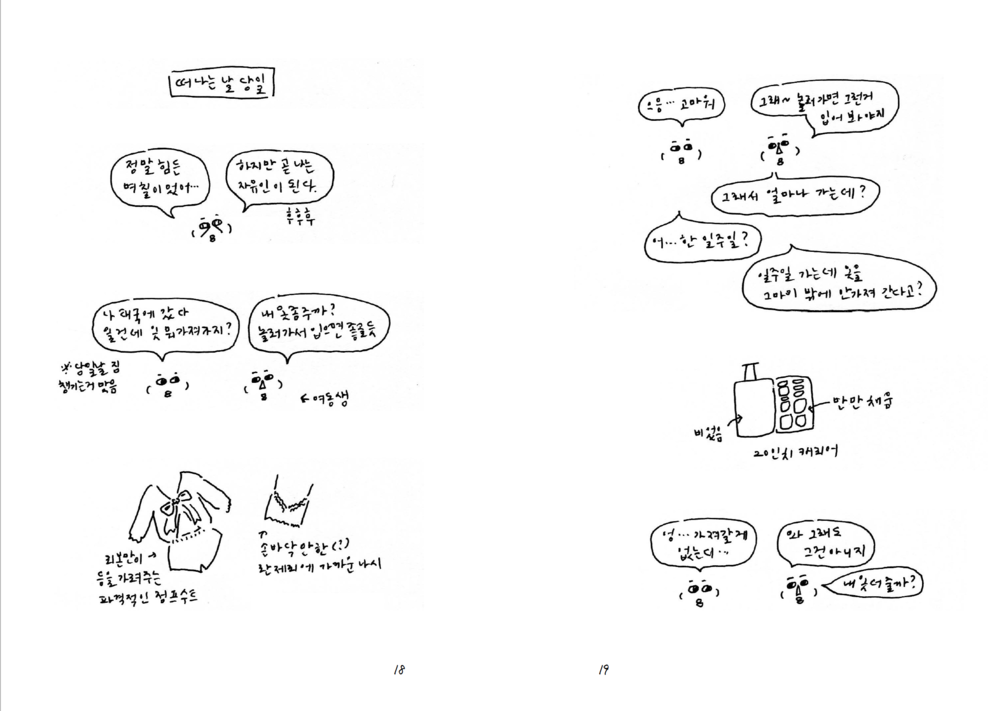 떠나는 날 당일
정말 힘든
며칠이었어…
하지만 곧 나는
자유인이 된다.
후후후
나 태국에 갔다
올건데 옷 뭐가져가지?
내 옷 좀 주까?
놀러가서 입으면 좋을듯
※ 당일날 짐
챙기는거 맞음
← 여동생
리본만이 →
등을 가려주는
파격적인 점프수트
↑
손바닥만한(?)
란제리에 가까운 나시
18
으응… 고마워
그래~ 놀러가면 그런거
입어 봐야지
그래서 얼마나 가는데?
어…한 일주일?
일주일 가는데 옷을
그마이 밖에 안가져 간다고?
비었음
만만 채움
20인치 캐리어
엉…가져갈게
없는디…
와 그래도
그건 아니지
내 옷 더 줄까?
19